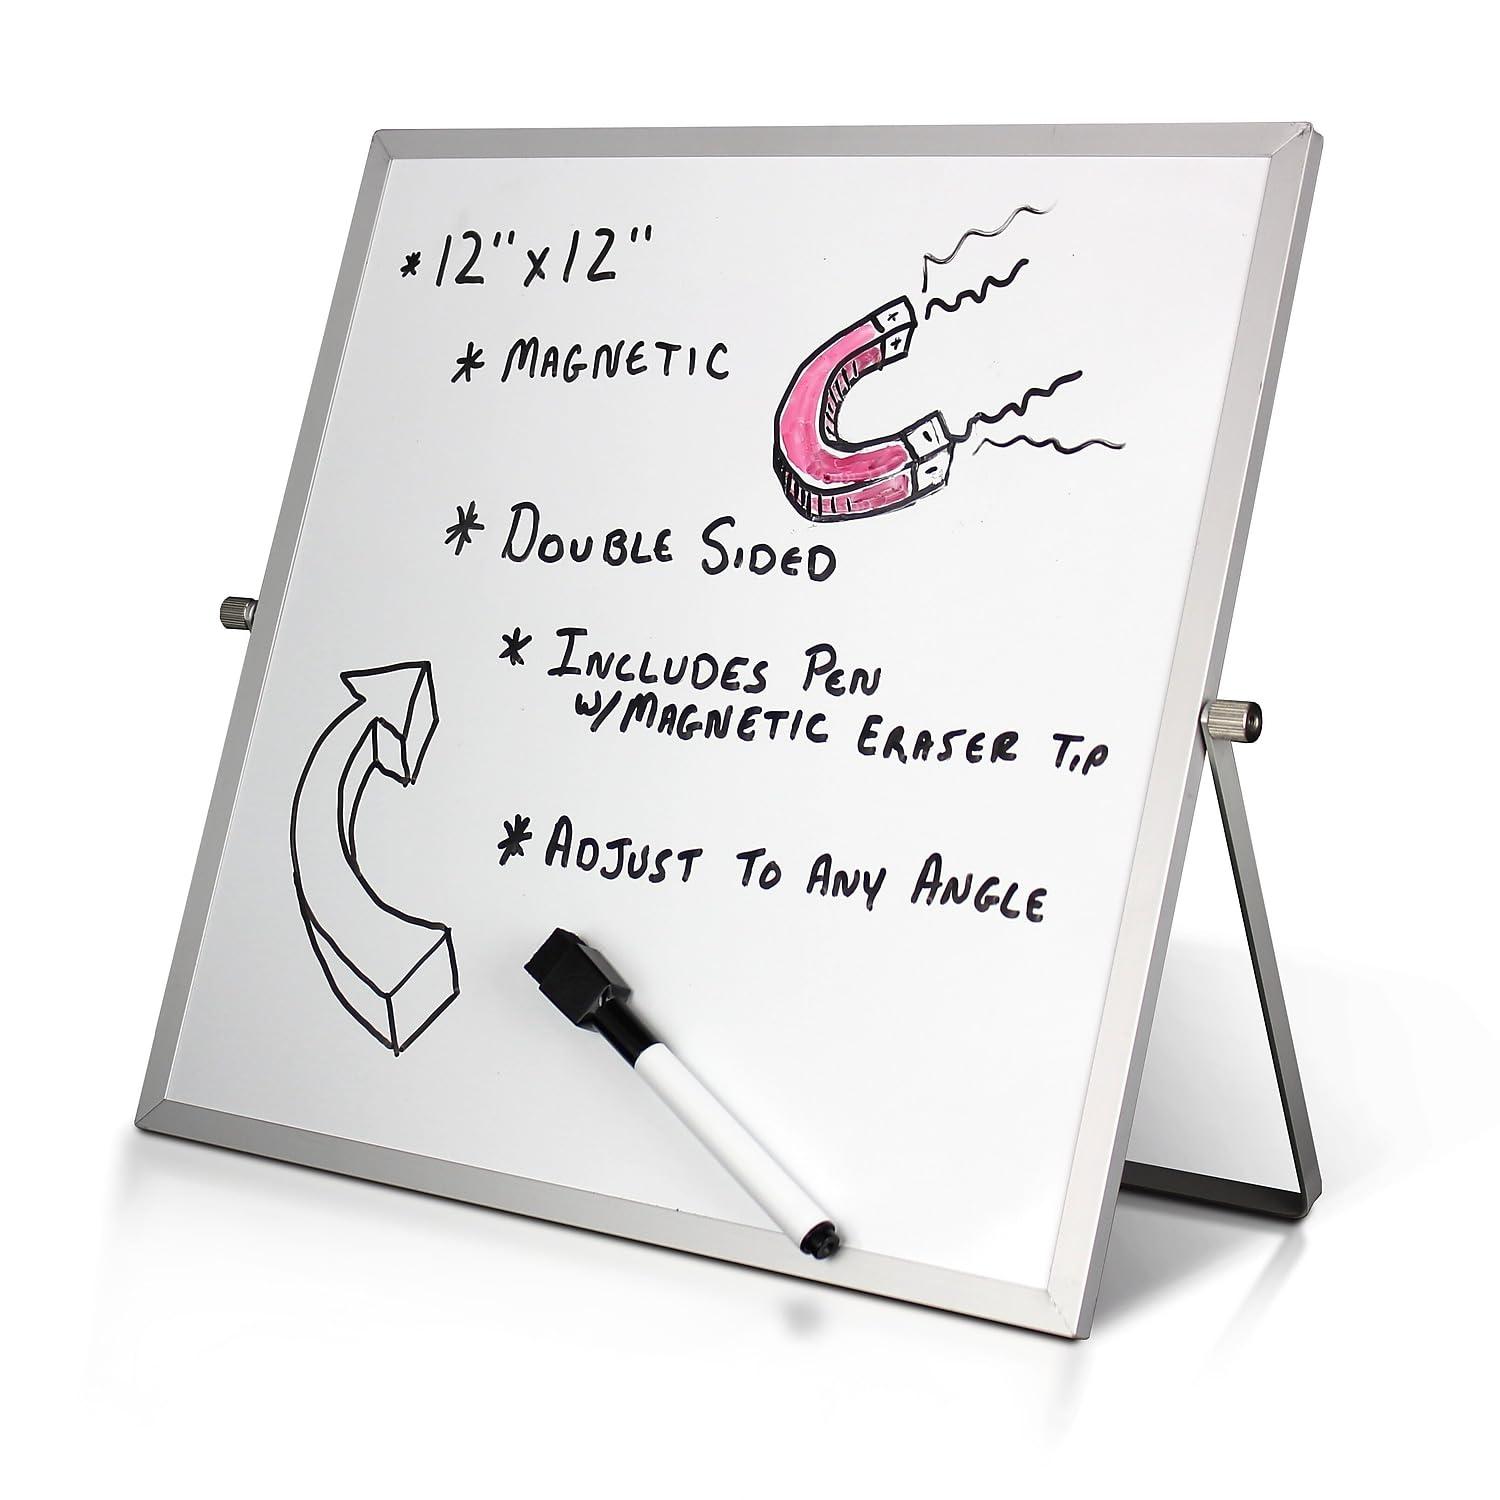 * 12" x 12"
* MAGNETIC
+
+
-
-
* DOUBLE SIDED
* INCLUDES PEN
W/MAGNETIC ERASER TIP
* ADJUST TO ANY ANGLE